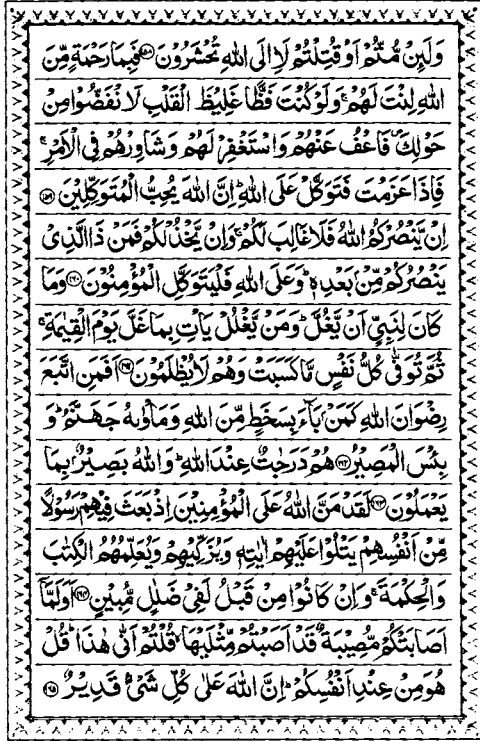 وَلَئِنْ مُّتُّمْ اَوْ قُتِلْتُمْ لَاِالَى اللهِ تُحْشَرُوْنَ ۝۱۵۸ فَبِمَا رَحْمَةٍ مِّنَ
اللهِ لِنْتَ لَهُمْ ۚ وَلَوْ كُنْتَ فَظًّا غَلِيْظَ الْقَلْبِ لَا نْفَضُّوْا مِنْ
حَوْلِكَ ۪ فَاعْفُ عَنْهُمْ وَاسْتَغْفِرْ لَهُمْ وَشَاوِرْهُمْ فِى الْاَمْرِ ۚ
فَاِذَا عَزَمْتَ فَتَوَكَّلْ عَلَى اللهِ ؕ اِنَّ اللهَ يُحِبُّ الْمُتَوَكِّلِيْنَ ۝۱۵۹
اِنْ يَّنْصُرْكُمُ اللهُ فَلَا غَالِبَ لَكُمْ ۚ وَاِنْ يَّخْذُلْكُمْ فَمَنْ ذَا الَّذِىْ
يَنْصُرُكُمْ مِّنْۢ بَعْدِهٖ ؕ وَعَلَى اللهِ فَلْيَتَوَكَّلِ الْمُؤْمِنُوْنَ ۝۱۶۰ وَمَا
كَانَ لِنَبِىٍّ اَنْ يَّغُلَّ ؕ وَمَنْ يَّغْلُلْ يَاْتِ بِمَا غَلَّ يَوْمَ الْقِيٰمَةِ ۚ
ثُمَّ تُوَفّٰى كُلُّ نَفْسٍ مَّا كَسَبَتْ وَهُمْ لَا يُظْلَمُوْنَ ۝۱۶۱ اَفَمَنِ اتَّبَعَ
رِضْوَانَ اللهِ كَمَنْۢ بَآءَ بِسَخَطٍ مِّنَ اللهِ وَمَاْوٰىهُ جَهَنَّمُ ؕ وَ
بِئْسَ الْمَصِيْرُ ۝۱۶۲ هُمْ دَرَجٰتٌ عِنْدَ اللهِ ؕ وَاللهُ بَصِيْرٌۢ بِمَا
يَعْمَلُوْنَ ۝۱۶۳ لَقَدْ مَنَّ اللهُ عَلَى الْمُؤْمِنِيْنَ اِذْ بَعَثَ فِيْهِمْ رَسُوْلًا
مِّنْ اَنْفُسِهِمْ يَتْلُوْا عَلَيْهِمْ اٰيٰتِهٖ وَيُزَكِّيْهِمْ وَيُعَلِّمُهُمُ الْكِتٰبَ
وَالْحِكْمَةَ ۚ وَاِنْ كَانُوْا مِنْ قَبْلُ لَفِىْ ضَلٰلٍ مُّبِيْنٍ ۝۱۶۴ اَوَلَمَّآ
اَصَابَتْكُمْ مُّصِيْبَةٌ قَدْ اَصَبْتُمْ مِّثْلَيْهَا ۙ قُلْتُمْ اَنّٰى هٰذَا ؕ قُلْ
هُوَ مِنْ عِنْدِ اَنْفُسِكُمْ ؕ اِنَّ اللهَ عَلٰى كُلِّ شَىْءٍ قَدِيْرٌ ۝۱۶۵